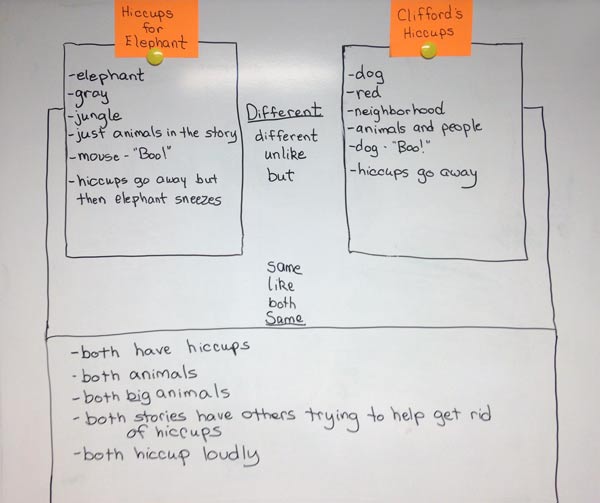 Hiccups
for
Elephant
-elephant
-gray
-jungle
-just animals in the story
-mouse-"Boo!"
-hiccups go away but
then elephant sneezes
Different
different
unlike
but
Clifford's
Hiccups
-dog
-red
-neighborhood
-animals and people
-dog-"Boo!"
-hiccups go away
same
like
both
Same
-both have hiccups
-both animals
-both big animals
-both stories have others trying to help get rid
of hiccups
-both hiccup loudly